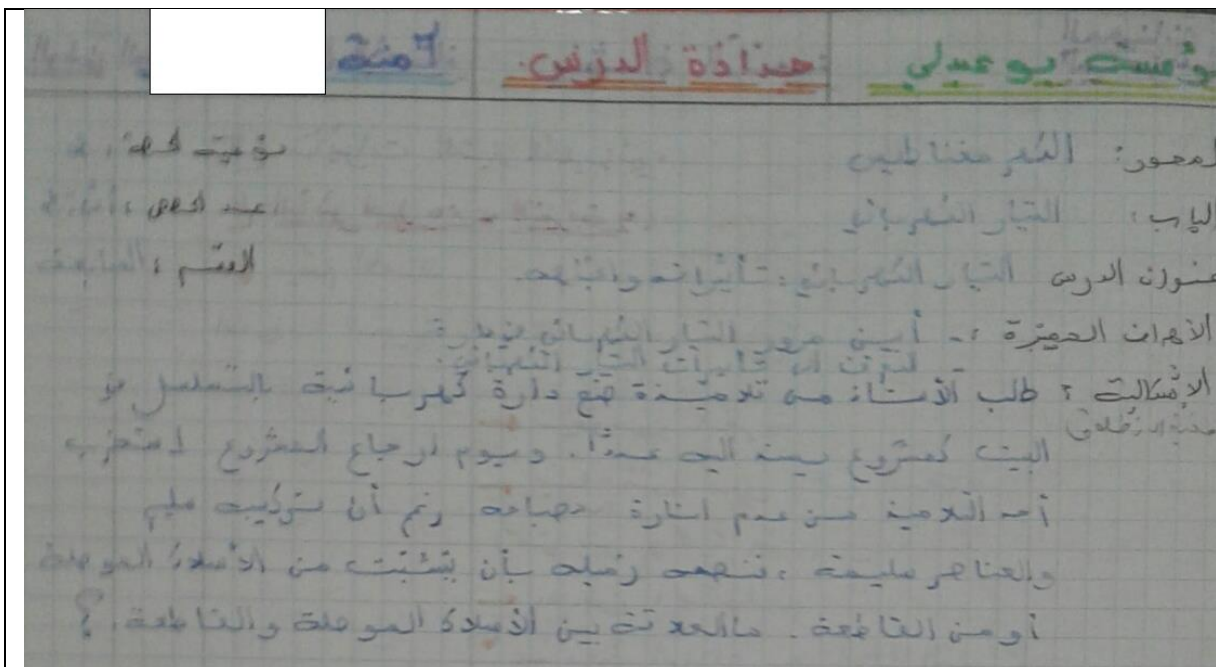 جذاذة الدرس
المحور: الكهرمغناطيس
الباب: التيار الكهربائي
عنوان الدرس التيار الكهربائي: تأثيراته و
الأهداف المميزة: - أبين مرور التيار الكهربائي في دارة
أتعرف إلى تأثيرات التيار الكهربائي.
الإشكالية: طلب الأستاذ من تلاميذه صنع دارة كهربائية بالتسلسل في
البيت كمشروع يسند إليه عددًا. ويوم إرجاع المشروع استغرب
أحد التلاميذ من عدم إنارة مصباحه رغم أن تركيبه سليم
والعناصر سليمة، فنصحه زميله بأن يتثبت من الأسلاك الموصلة
أو من القاطعة. ما العلاقة بين الأسلاك الموصلة والقاطعة؟